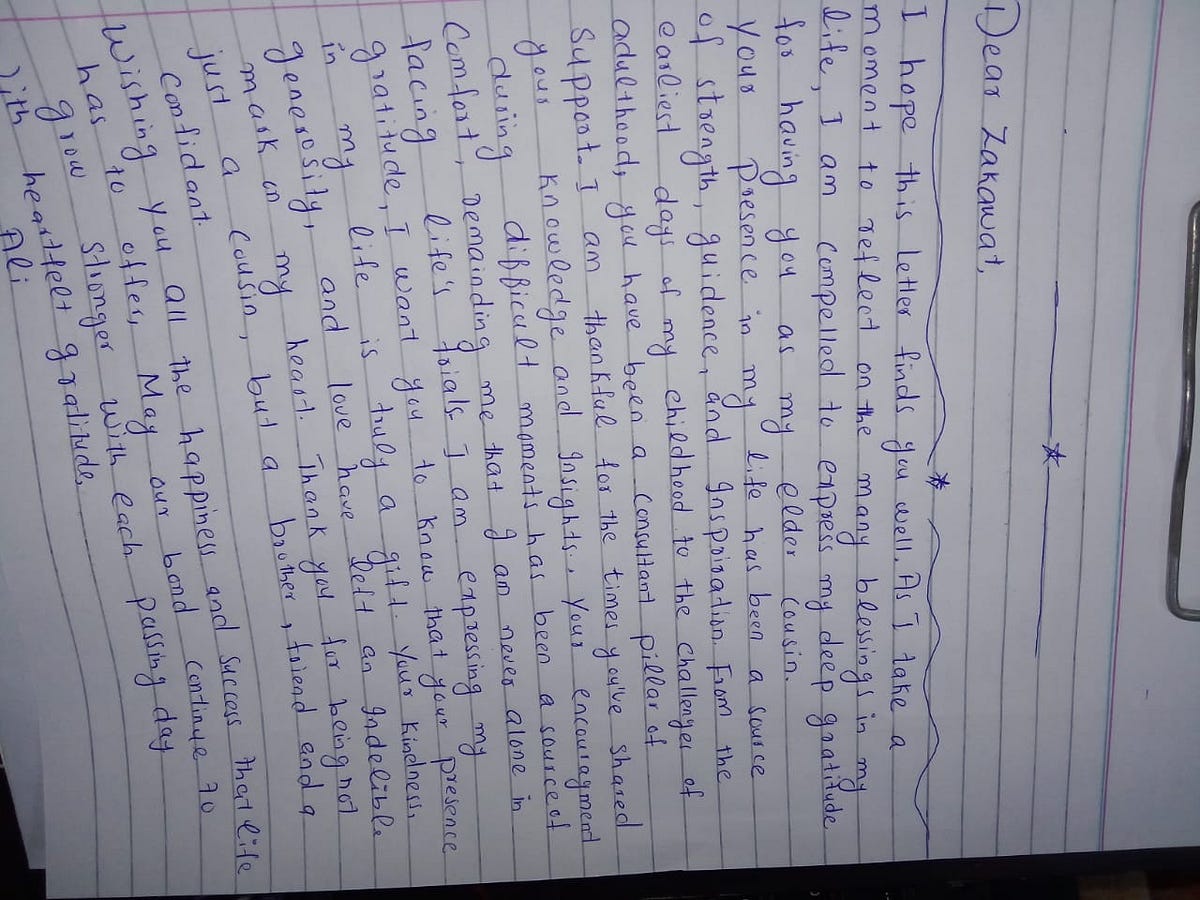 Dear Zakawat,
I hope this letter finds you well. As I take a
moment to reflect on the many blessings in my
life, I am compelled to express my deep gratitude
for having you as my elder cousin.
Your presence in my life has been a source
of strength, guidence, and Inspiration. From the
earliest days of my childhood to the challenges of
adulthood, you have been a consultant pillar of
Support. I am thankful for the times you've shared
your knowledge and Insights. Your encouragment
during difficult moments has been a source of
Comfort, remainding me that I am never alone in
facing life's trials. I am expressing my
gratitude, I want you to know that your presence
in my life is truly a gift. Your kindness,
generosity, and love have left an Indelible
mark on my heart. Thank you for being not
just a cousin, but a brother, friend and a
confidant.
Wishing you all the happiness and success that life
has to offer, May our bond continue to
grow stronger with each passing day
ith heartfelt gratitude.
Ali